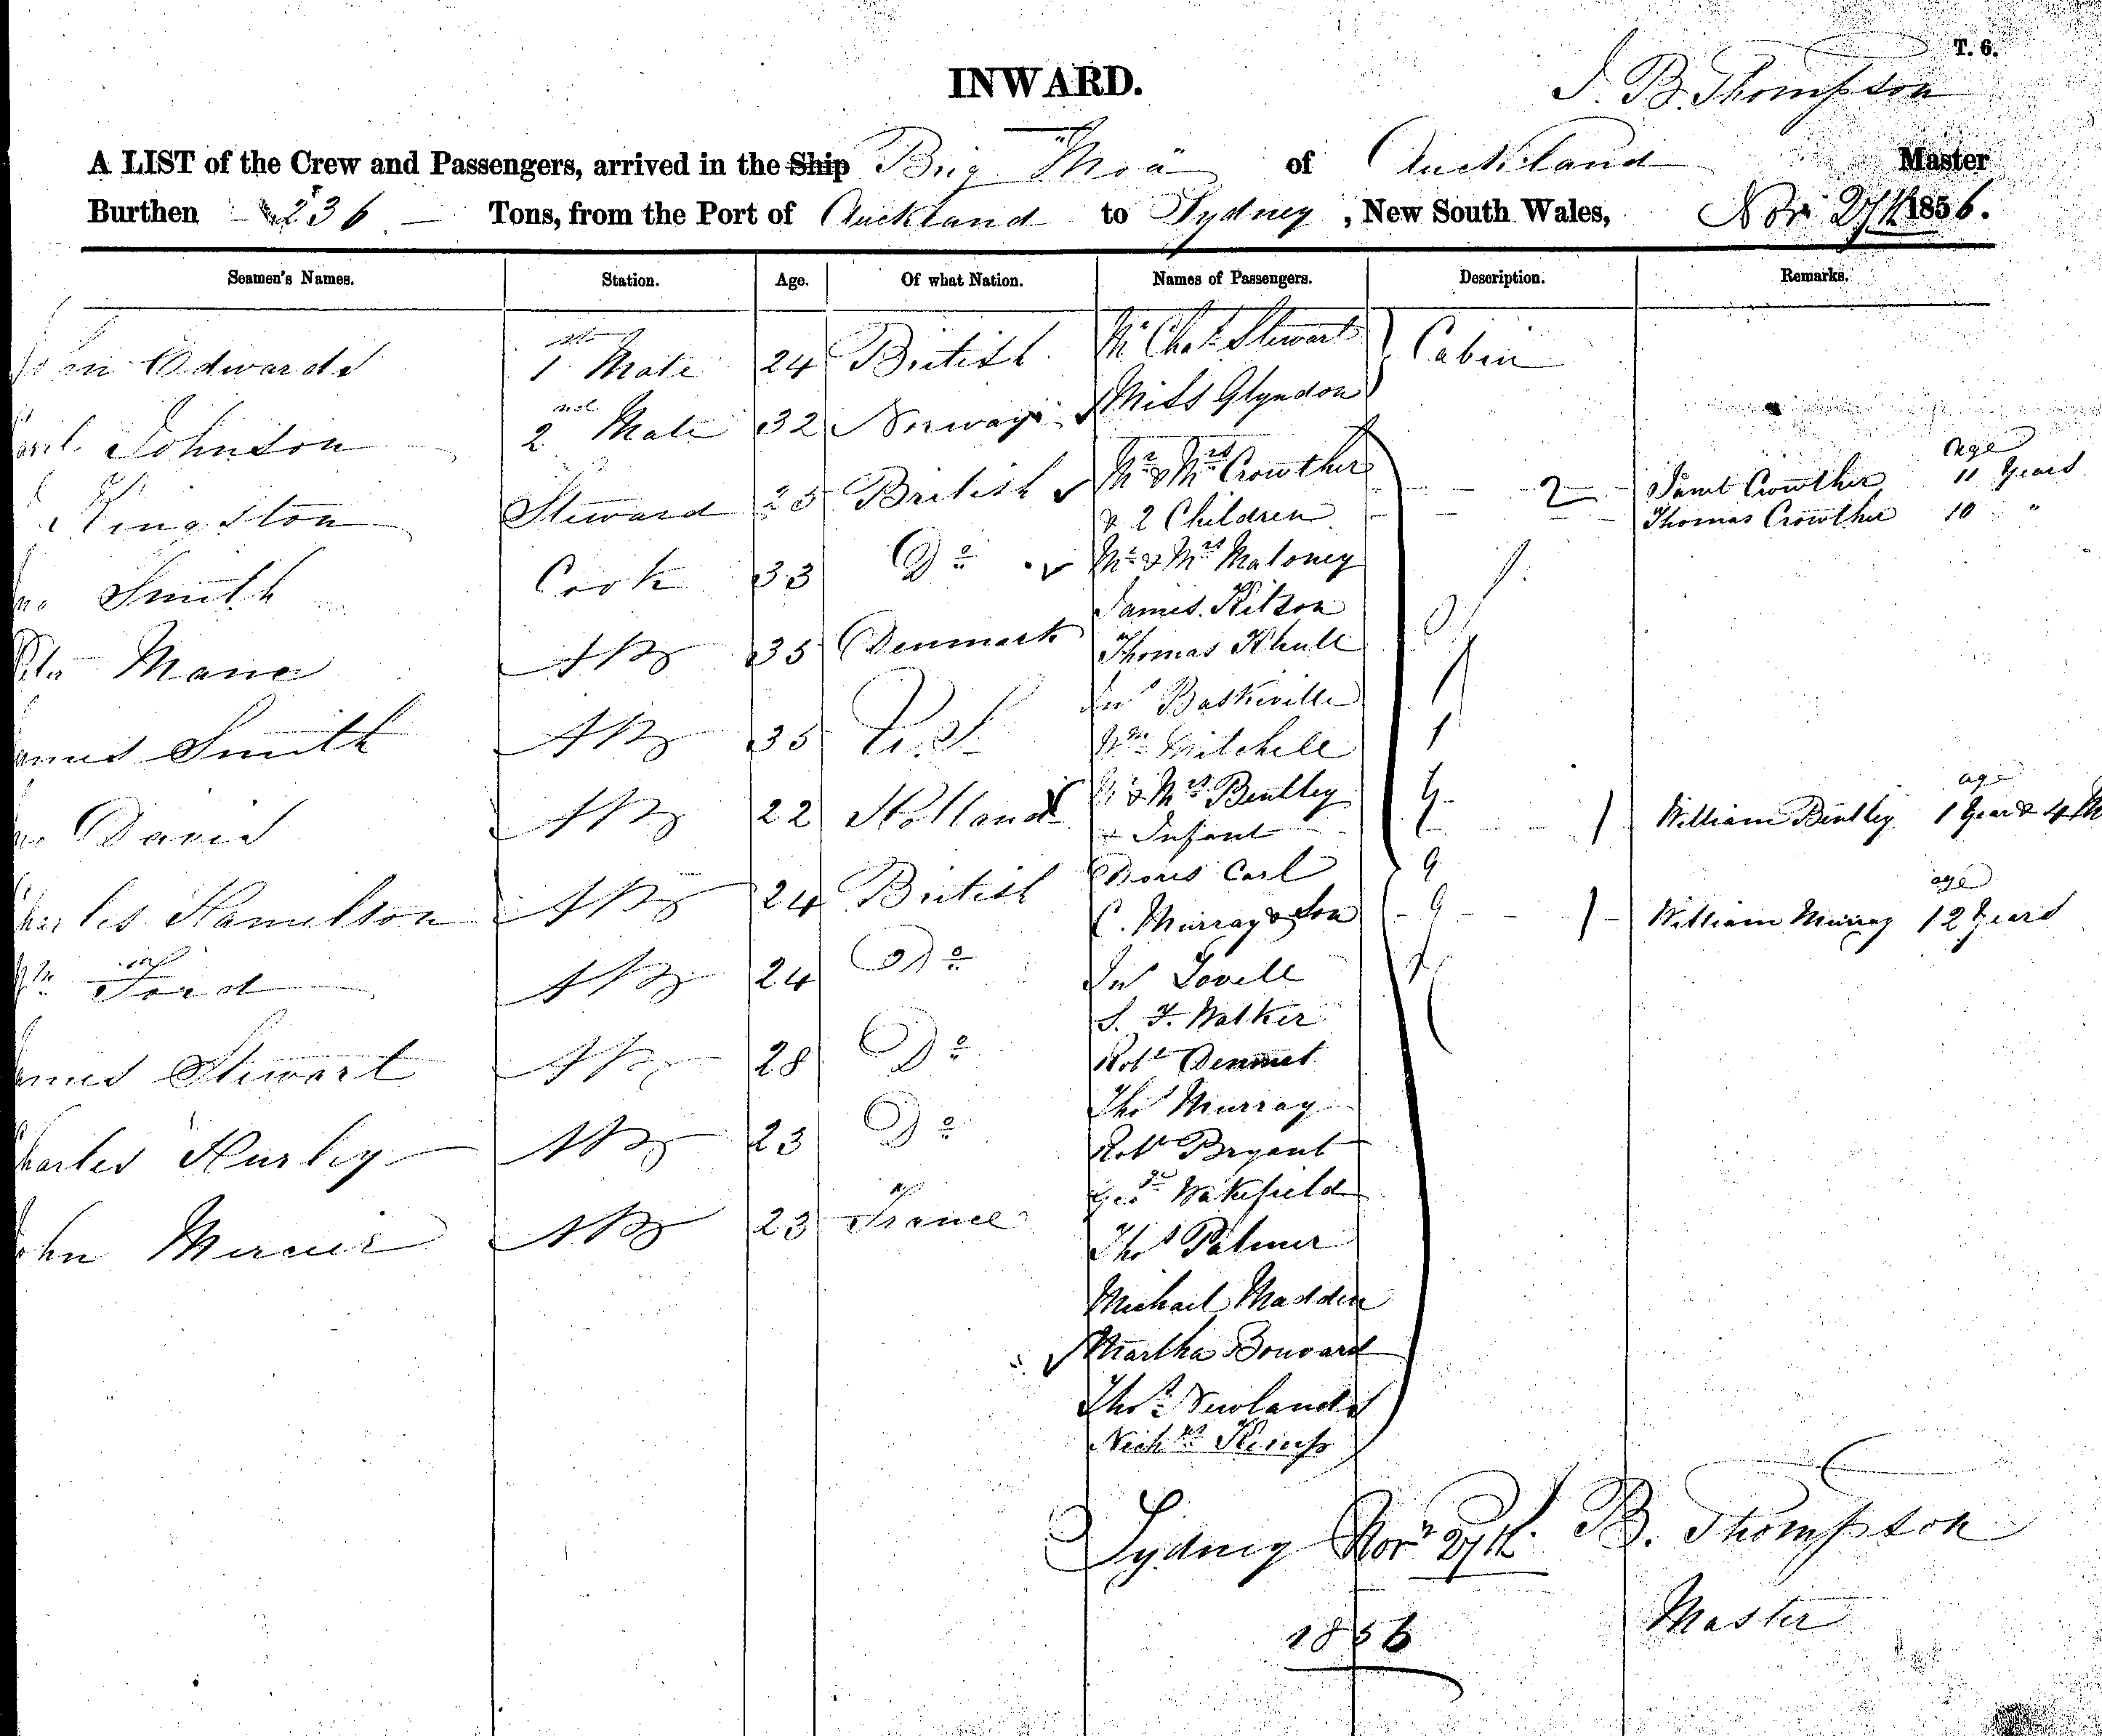 T. 6.
INWARD.
J. B. Thompson
A LIST of the Crew and Passengers, arrived in the Ship Brig "Moa" of Auckland Master
Burthen 236 Tons, from the Port of Auckland to Sydney, New South Wales, Novr 27th 1856.
Seamen's Names. Station. Age. Of what Nation. Names of Passengers. Description. Remarks.
Edwards 1 Mate 24 British Mr Chas Stewart Cabin
Miss Glyndon
Johnson 2nd Mate 32 Norway
Mr & Mrs Crowther 2 Janet Crowther age 11 Years
Kingston Steward 25 British & 2 Children Thomas Crowther 10 "
Smith Cook 33 Do Mr & Mrs Maloney
James Kitson
Mane AB 35 Denmark Thomas Khull
Jno Baskiville
Smith AB 35 U.S. Wm Mitchell
Mr & Mrs Bentley age
David AB 22 Holland & Infant 1 William Bentley 1 Year & 4 M
Carl
Hamilton AB 24 British C. Murray & Son 1 William Murray age 12 Years
Wm Ford AB 24 Do Jno Lovell
S. F. Walker
Stewart AB 28 Do Robt Dennet
Thos Murray
Charles Hurley AB 23 Do Robt Bryant
Geo Wakefield
John Mercier AB 23 France Thos Palmer
Michael Madden
Martha Bouvard
Thos Newlands
Nichs Kemp
Sydney Novr 27th J. B. Thompson
1856 Master